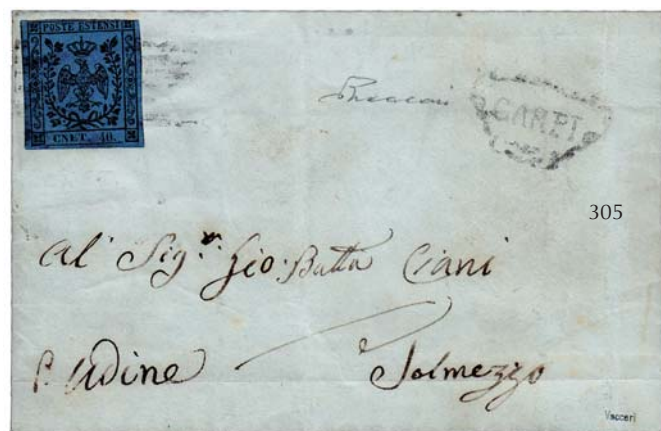 POSTE ESTENSI
CNET. 40.
CARPI
305
Al Sig.r Gio: Batta Ciani
p. Udine Tolmezzo
Vaccari